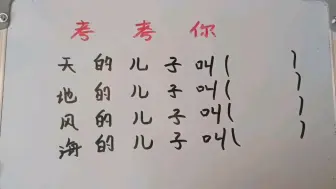 考考你
天的儿子叫( )
地的儿子叫( )
风的儿子叫( )
海的儿子叫( )